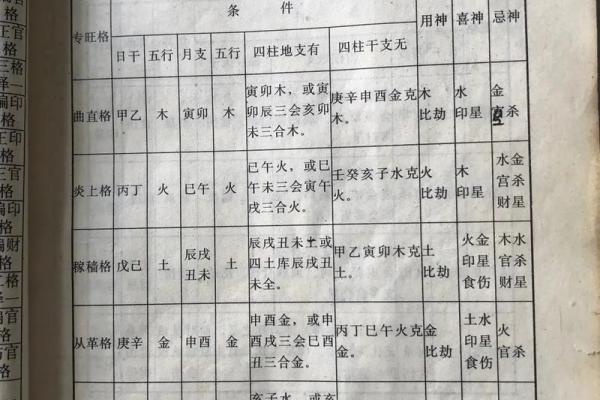 专旺格 条 件 用神 喜神 忌神
日干 五行 月支 五行 四柱地支有 四柱干支无
曲直格 甲乙 木 寅卯 木
寅卯木，或寅
卯辰三会亥卯
未三合木。
庚辛申酉金克
木。
木
比劫
水
印星
金
官杀
炎上格 丙丁 火 巳午 火
巳午火，或巳
午未三会寅午
戌三合火。
壬癸亥子水克
火。
火
比劫
木
印星
水金
官杀
财星
稼穑格 戊己 土
辰戌
丑未
土
辰戌丑未土或
四土库辰戌丑
未全。
甲乙寅卯木克
土。
土
比劫
火金
印星
食伤
木水
官杀
财星
从革格 庚辛 金 申酉 金
申酉金，或申
酉戌三会巳酉
丑三合金。
丙丁巳午火克
金。
金
比劫
土水
印星
食伤
火
官杀
亥子水，或亥